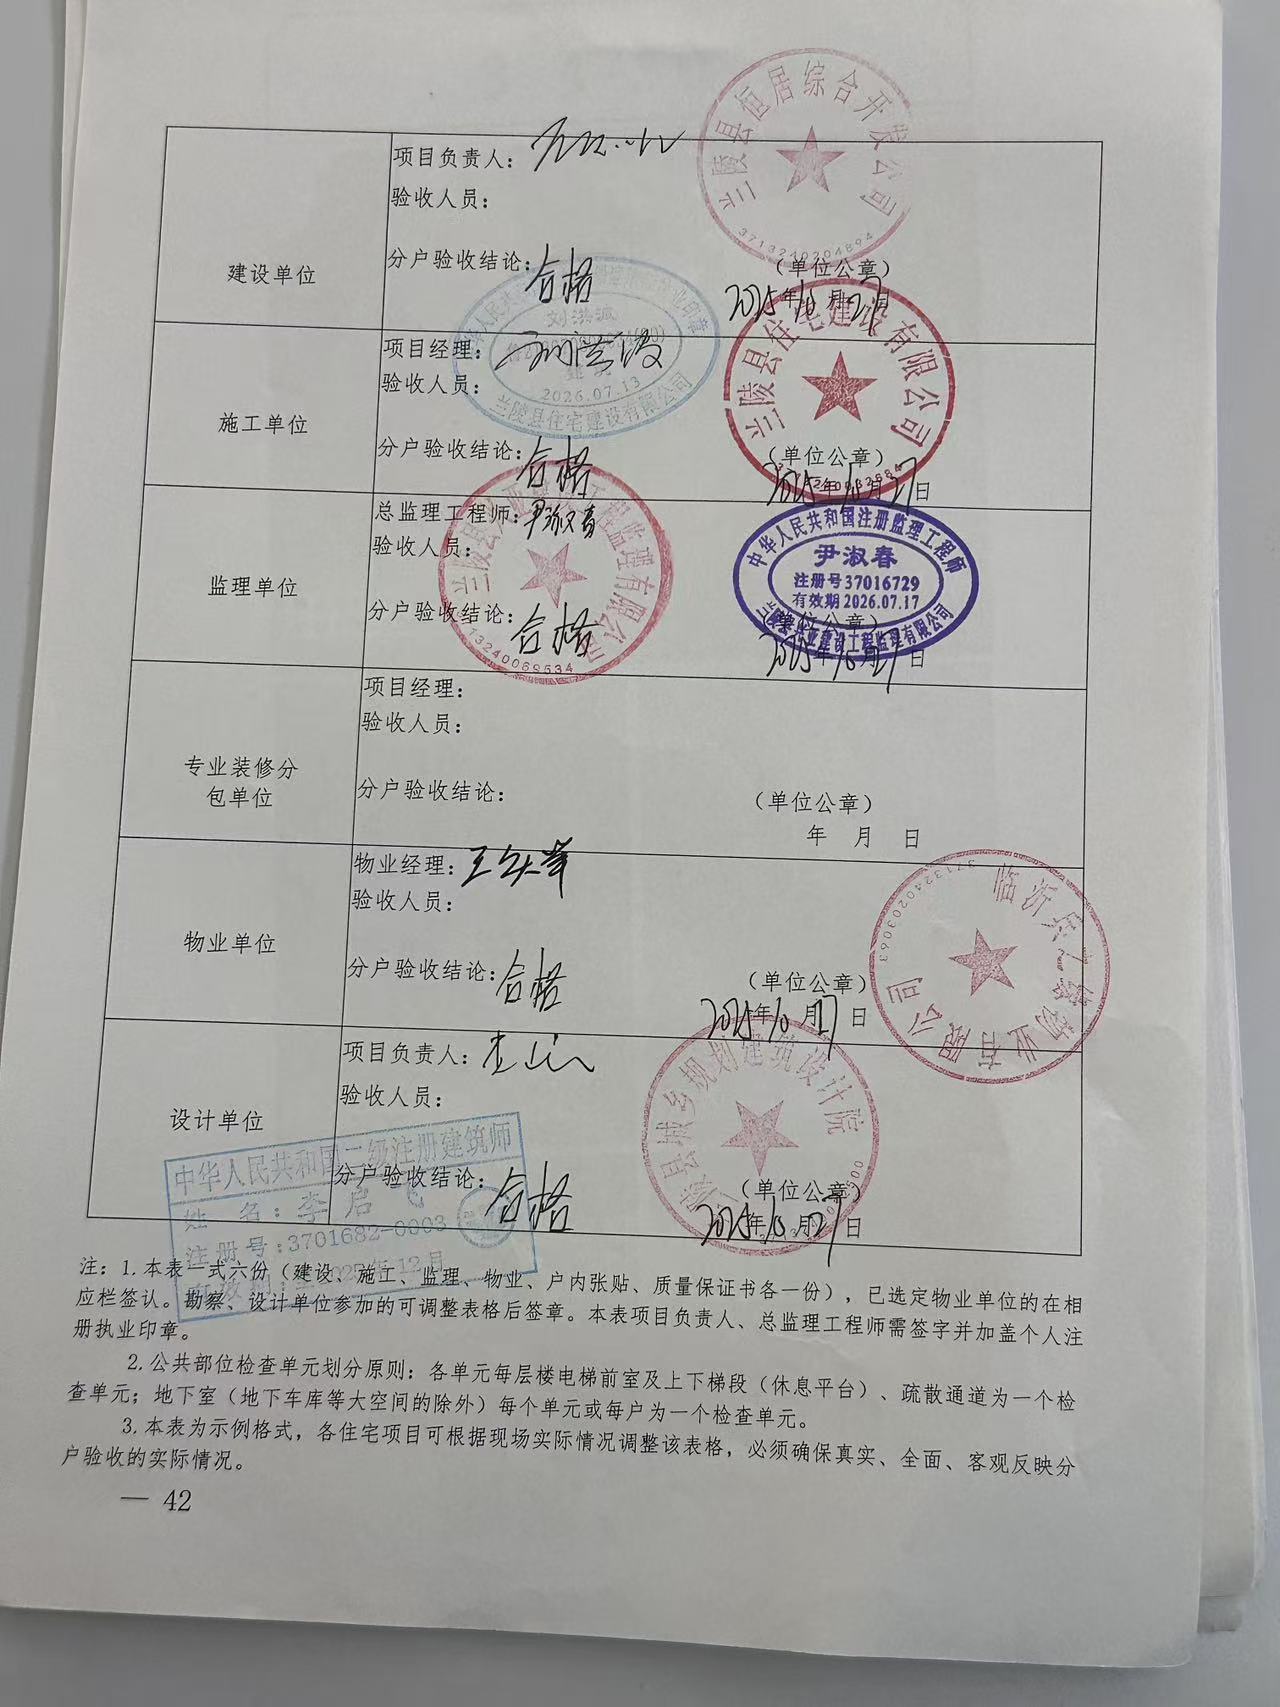 兰陵县恒居综合开发公司
3713240204894
建设单位
项目负责人：
验收人员：
分户验收结论：合格
（单位公章）
2025年10月27日
兰陵县住宅建设有限公司
施工单位
项目经理：刘洪波
验收人员：
2026.07.13
兰陵县住宅建设有限公司
分户验收结论：合格
（单位公章）
2025年10月27日
监理单位
总监理工程师：尹淑春
验收人员：
分户验收结论：合格
工程监理有限公司
中华人民共和国注册监理工程师
尹淑春
注册号37016729
有效期2026.07.17
建设工程监理有限公司
（单位公章）
2025年10月27日
专业装修分
包单位
项目经理：
验收人员：
分户验收结论：
（单位公章）
年 月 日
物业单位
物业经理：
验收人员：
分户验收结论：合格
（单位公章）
2025年10月27日
物业有限公司
3713240203063
设计单位
项目负责人：
验收人员：
分户验收结论：合格
县城乡规划建筑设计院
（单位公章）
2025年10月27日
中华人民共和国二级注册建筑师
姓 名：李启飞
注册号：3701682-0003
注：1.本表一式六份（建设、施工、监理、物业、户内张贴、质量保证书各一份），已选定物业单位的在相
应栏签认。勘察、设计单位参加的可调整表格后签章。本表项目负责人、总监理工程师需签字并加盖个人注
册执业印章。
2.公共部位检查单元划分原则：各单元每层楼电梯前室及上下梯段（休息平台）、疏散通道为一个检
查单元；地下室（地下车库等大空间的除外）每个单元或每户为一个检查单元。
3.本表为示例格式，各住宅项目可根据现场实际情况调整该表格，必须确保真实、全面、客观反映分
户验收的实际情况。
— 42